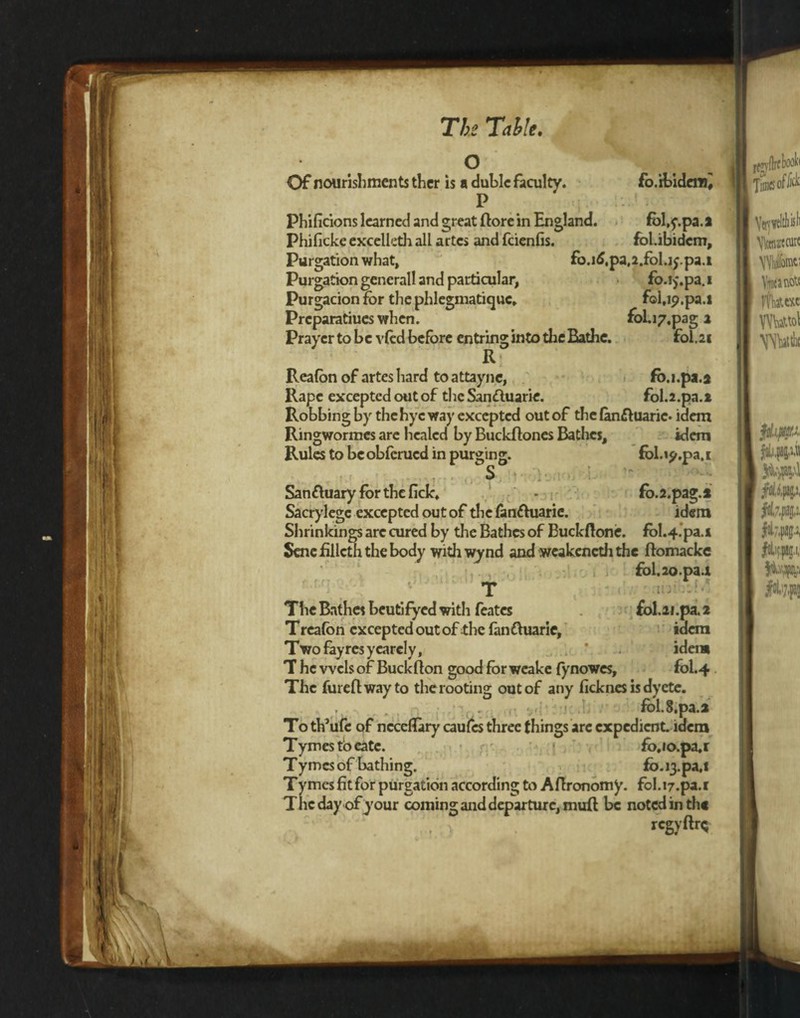 The Table.
O
Of nourishments ther is a duble faculty. fo.ibidem,
P
Phiſicions learned and great ſtore in England. fol,5.pa.2
Phiſicke excelleth all artes and ſcienſis. fol.ibidem,
Purgation what, fo.16,pa,2.fol.15.pa.1
Purgation generall and particular, fo.15.pa.1
Purgacion for the phlegmatique, fol,19.pa.1
Preparatiues when. fol.17,pag 2
Prayer to be vſed before entring into the Bathe. fol.21
R
Reaſon of artes hard to attayne, fo.1.pa.2
Rape excepted out of the Sanctuarie. fol.2.pa.2
Robbing by the hye way excepted out of the ſanctuarie. idem
Ringwormes are healed by Buckſtones Bathes, idem
Rules to be obſerued in purging. fol.19.pa,1
S
Sanctuary for the ſick, fo.2.pag.2
Sacrylege excepted out of the ſanctuarie. idem
Shrinkings are cured by the Bathes of Buckſtone. fol.4.pa.1
Sene filleth the body with wynd and weakeneth the ſtomacke
fol.20.pa.1
T
The Bathes beutifyed with ſeates fol.21.pa.2
Treaſon excepted out of the ſanctuarie, idem
Two fayres yearely, idem
The wels of Buckſton good for weake ſynowes, fol.4
The ſureſt way to the rooting out of any ſicknes is dyete.
fol.8.pa.2
To th'uſe of neceſſary cauſes three things are expedient. idem
Tymes to eate. fo,10.pa,1
Tymes of bathing. fo.13.pa,1
Tymes fit for purgation according to Aſtronomy. fol.17.pa.1
The day of your coming and departure, muſt be noted in the
regyſtre